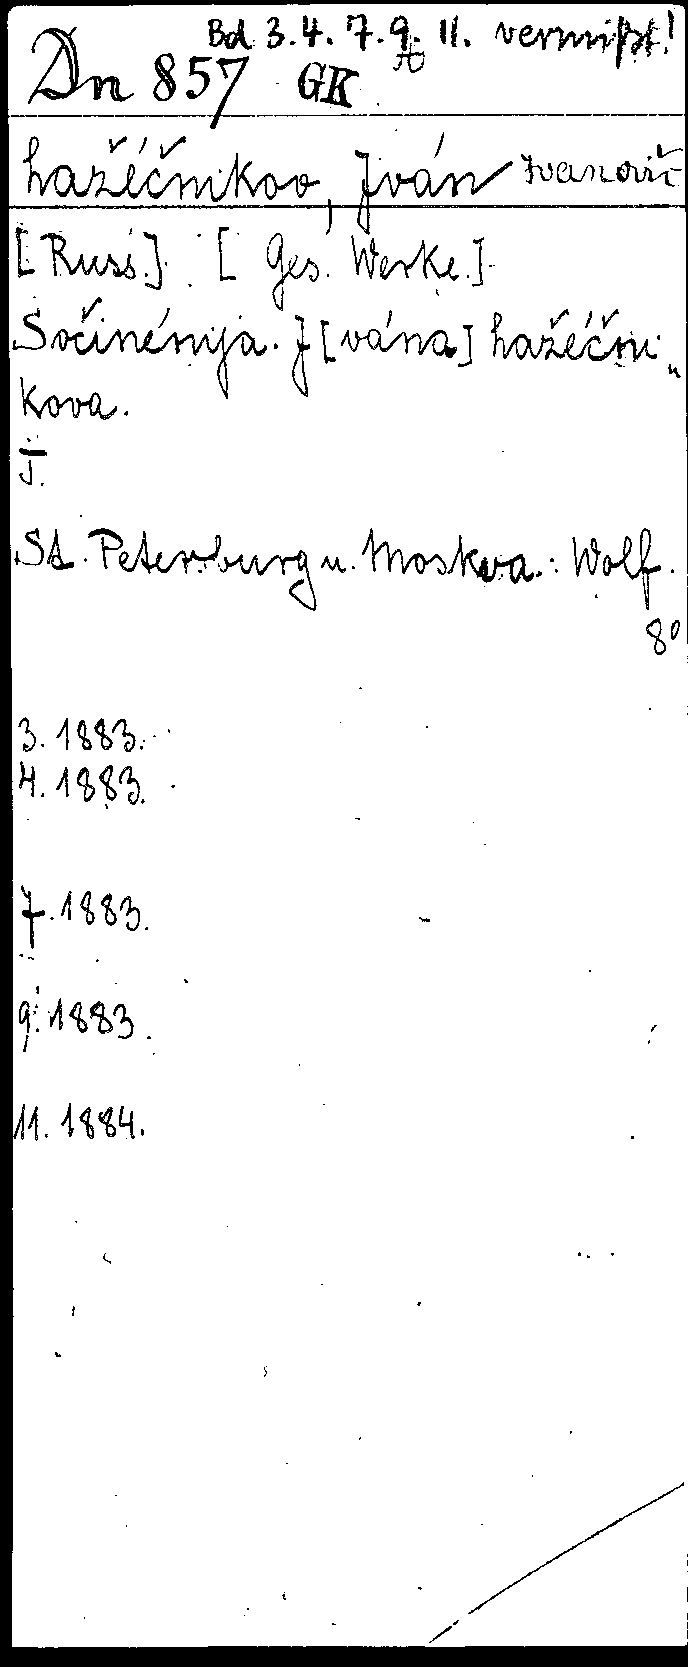 Bd 3.4.7.9. 11. vermißt!
Dn 857 GK
Lažéčnikov, Iván Ivanovič
[Russ.] [Ges. Werke.]
Sočinénija. I[vána] Lažéčni„
kova.
T.
St. Petersburg u. Moskva.: Wolf.
8°
3. 1883.
4. 1883.
7. 1883.
9. 1883.
11. 1884.